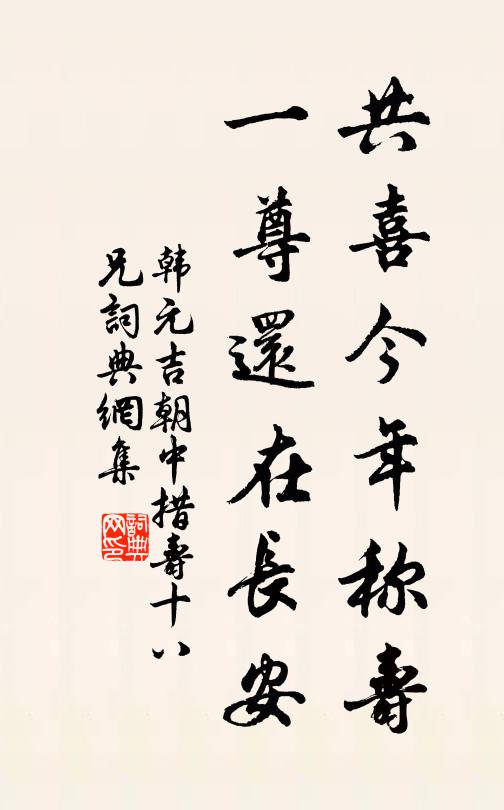 共喜今年称壽
一尊還在長安
韩元吉朝中措壽十八
兄詞典網集
詞典
网印